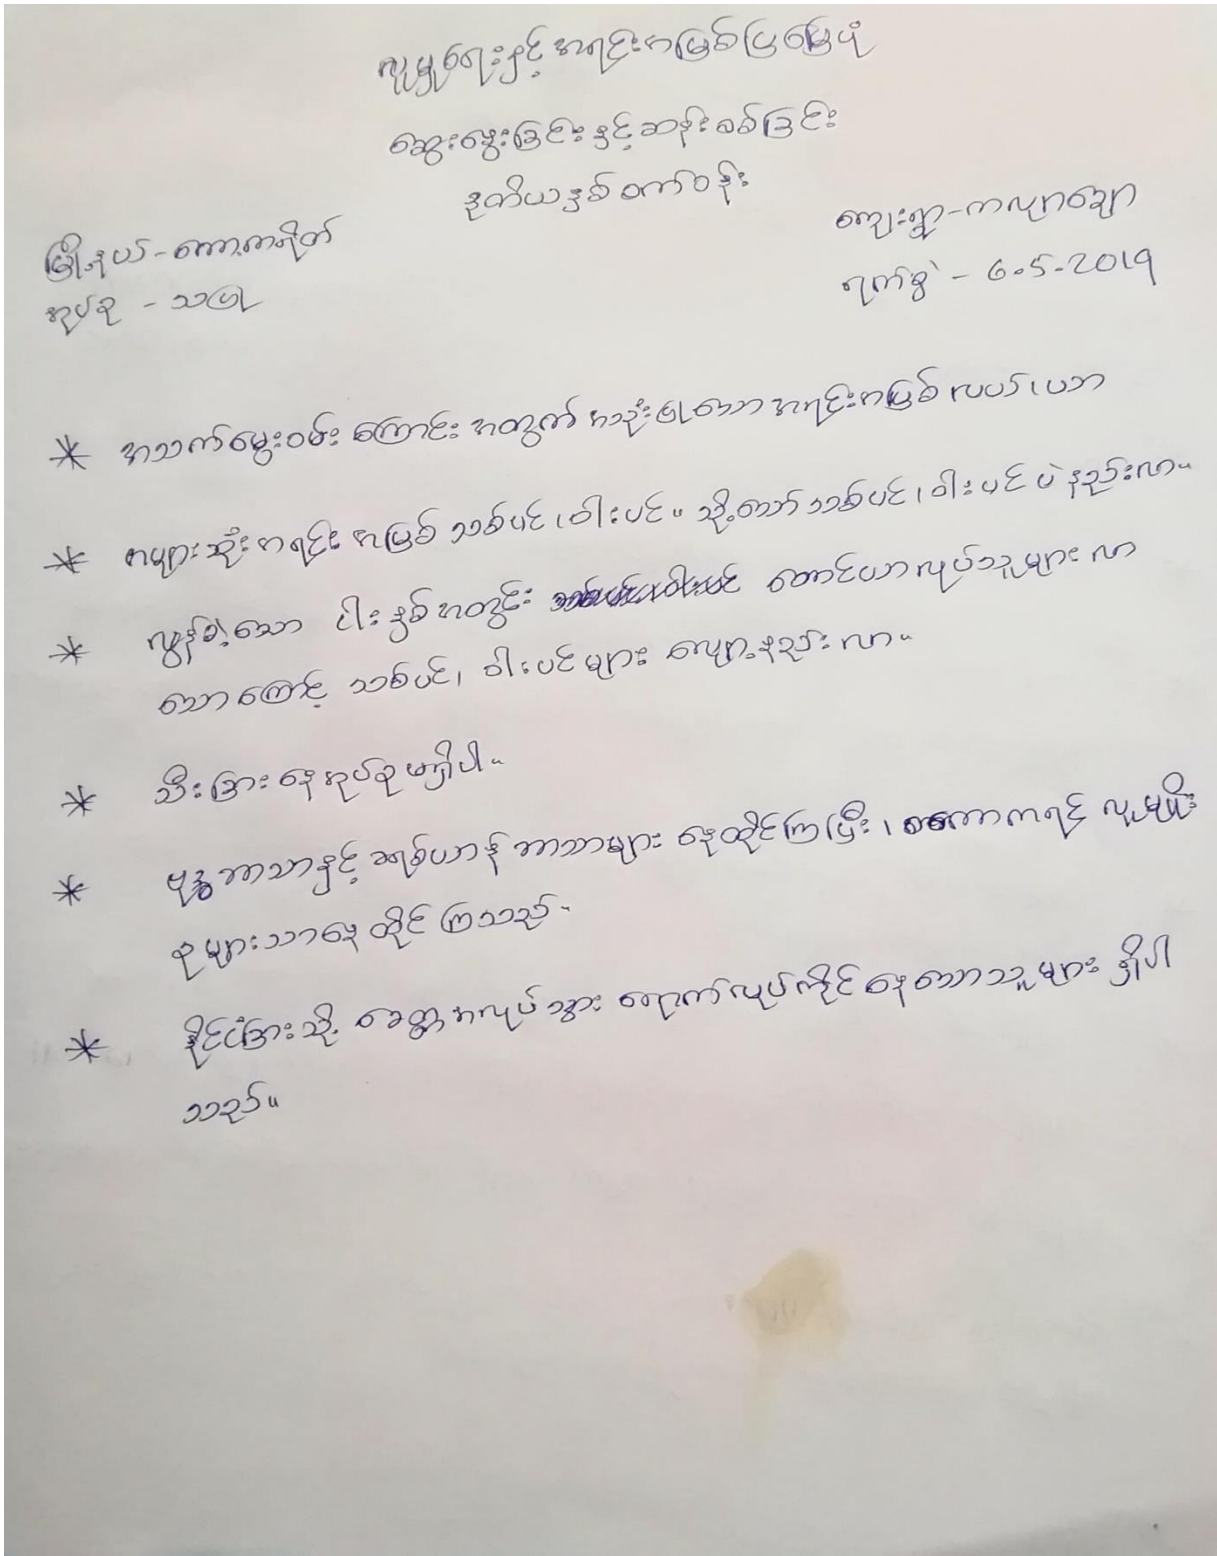 လူမှုရေးနှင့်အရင်းအမြစ်ပြမြေပုံ
ဆွေးနွေးခြင်းနှင့်ဆန်းစစ်ခြင်း
ဒုတိယနှစ်စက်ဝန်း
မြို့နယ်-ကော့ကရိတ်
ကျေးရွာ-ကလျာချော
အုပ်စု - သဖြု
ရက်စွဲ - 6.5.2019
* အသက်မွေးဝမ်းကြောင်းအတွက် အသုံးပြုသောအရင်းအမြစ် လယ်၊ ယာ
* အများဆုံးအရင်းအမြစ် သစ်ပင်၊ ဝါးပင်။ သို့သော် သစ်ပင်၊ ဝါးပင် ပဲ နည်းလာ။
* လွန်ခဲ့သော ငါးနှစ်အတွင်း တောင်ယာလုပ်သူများ လာ
သောကြောင့် သစ်ပင်၊ ဝါးပင်များ လျော့နည်းလာ။
* သီးခြားနေအုပ်စုမရှိပါ။
* ဗုဒ္ဓဘာသာနှင့် ခရစ်ယာန် ဘာသာများ နေထိုင်ကြပြီး၊ စကောကရင် လူမျိုး
စုများသာနေထိုင်ကြသည်။
* နိုင်ငံခြားသို့ ခေတ္တအလုပ်သွားရောက်လုပ်ကိုင်နေသောသူများ ရှိပါ
သည်။